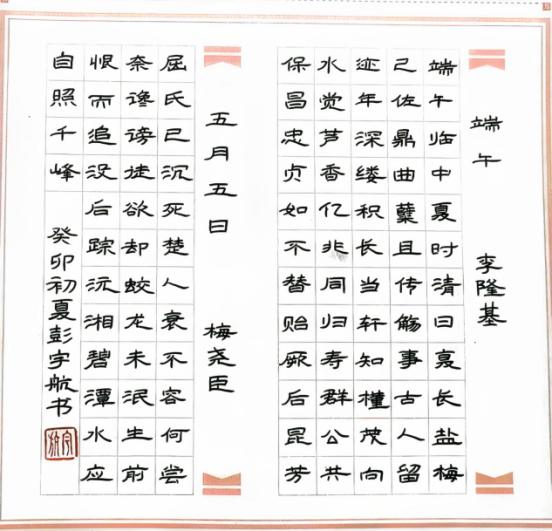 端午 李隆基
端午临中夏时清日复长盐梅
已佐鼎曲糵且传觞事古人留
迹年深缕积长当轩知槿茂向
水觉芦香亿兆同归寿群公共
保昌忠贞如不替贻厥后昆芳
五月五日 梅尧臣
屈氏已沉死楚人衰不容何尝
奈谗谤徒欲却蛟龙未泯生前
恨而追没后踪沅湘碧潭水应
自照千峰
癸卯初夏彭宇航书
宇航